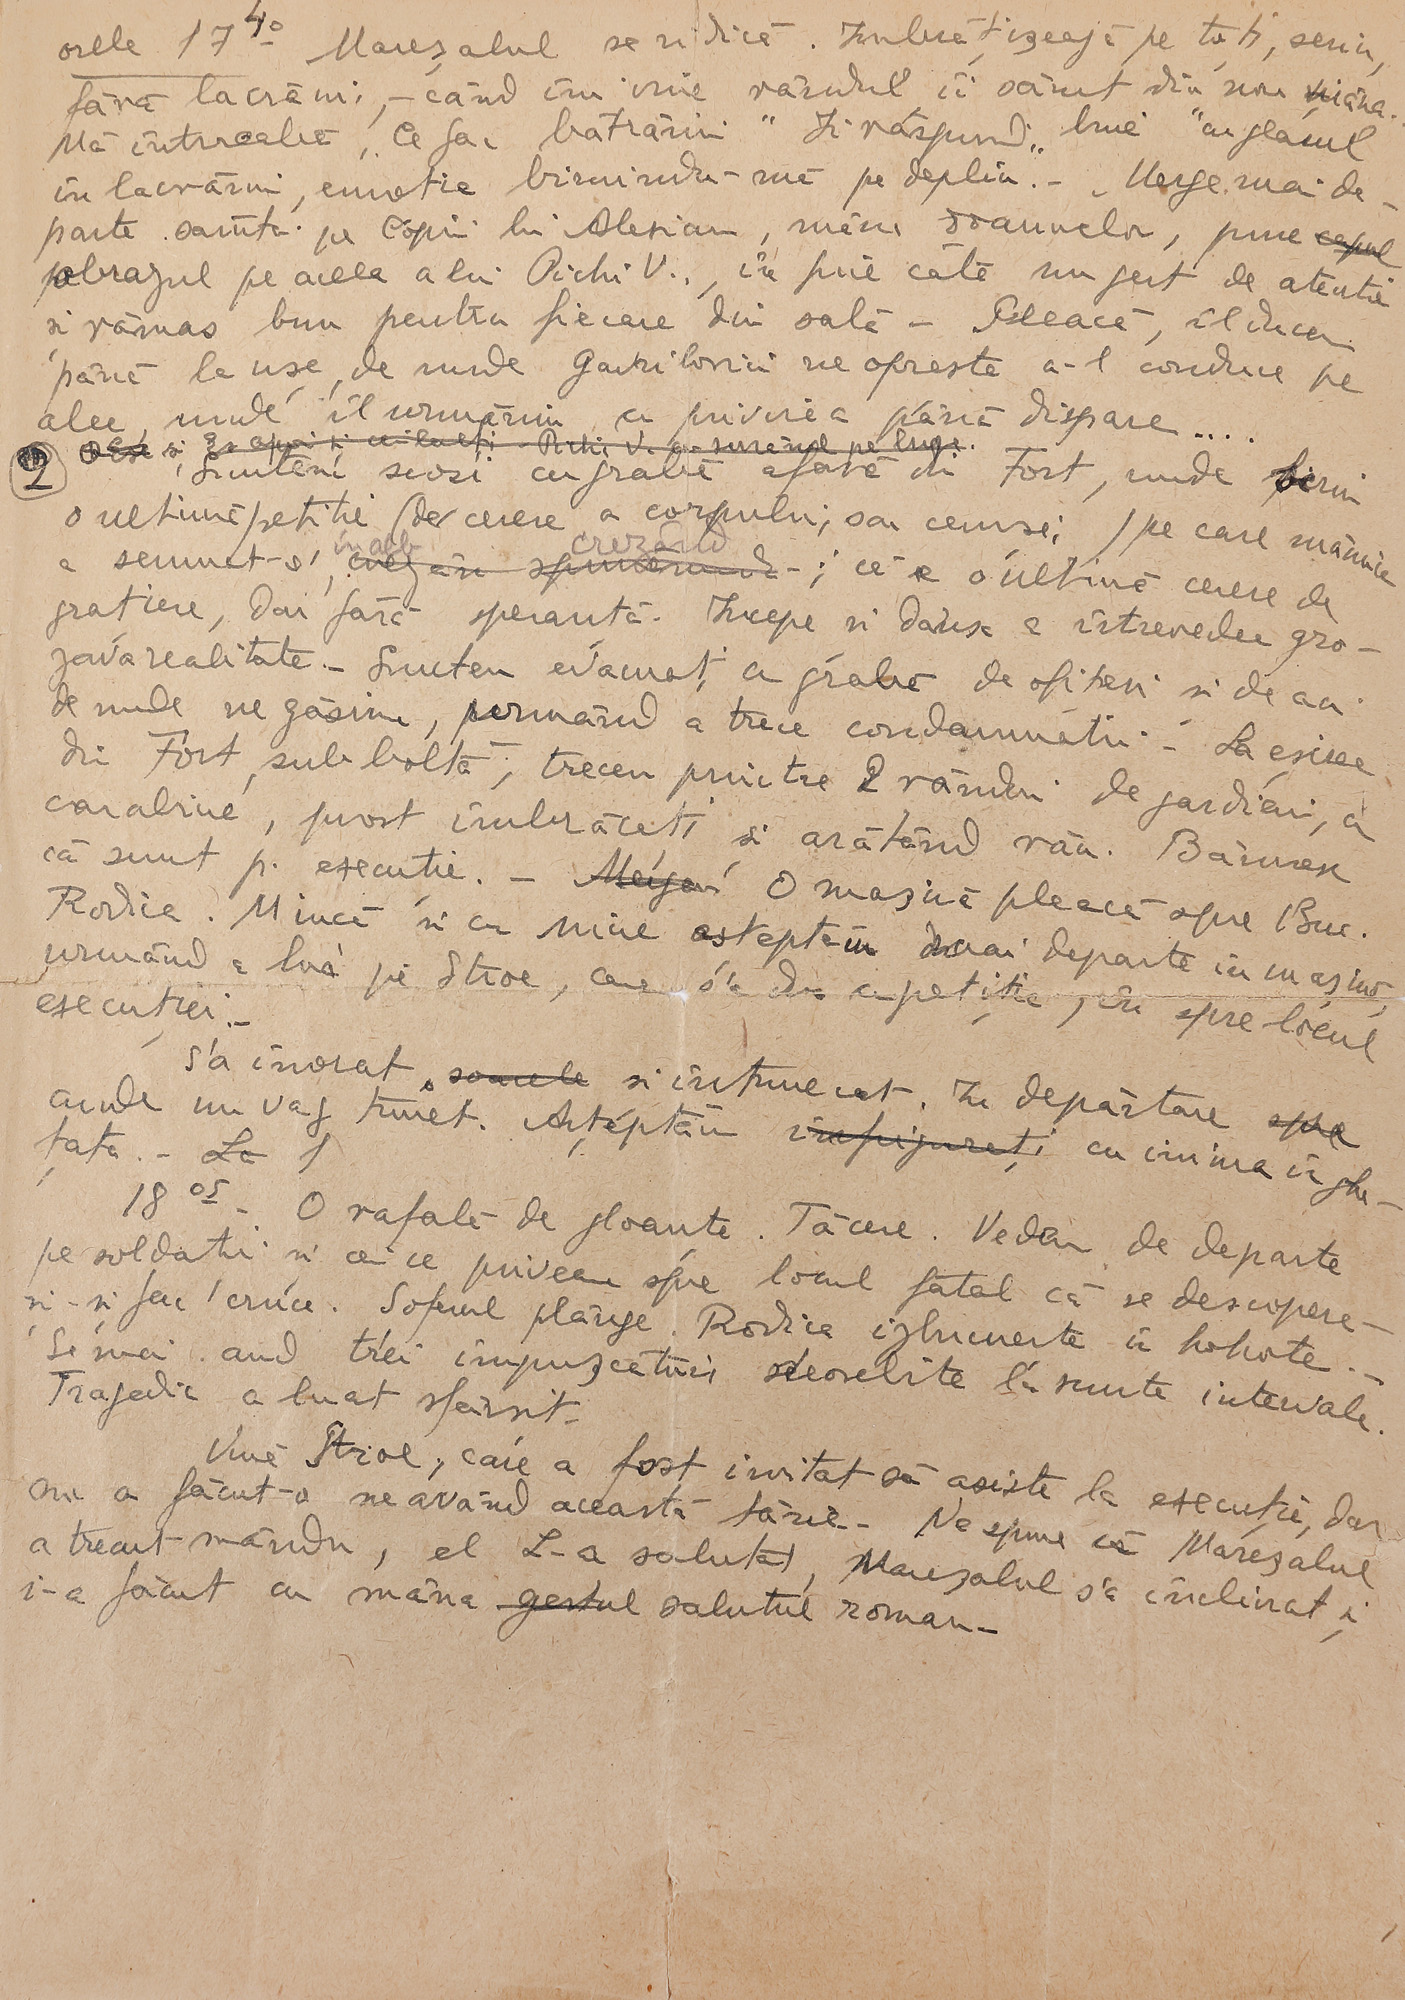 orele 17 40 Mareșalul se ridică. Imbrățișează pe toți, senin,
fără lacrămi, - când îmi vine rândul îi sărut din nou mâna..
Mă întreabă „Ce fac bătrânii" Ii răspund „bine" cu glasul
în lacrămi, emoția biruindu-mă pe deplin. - Merge mai de-
parte sărută pe copiii lui Alexian, mâna doamnelor, pune capul
obrazul pe acela a lui Pichi V., în fine câte un gest de atenție
și rămas bun pentru fiecare din sală - Pleacă, îl ducem
până la ușe, de unde Gavrilovici ne oprește a-l conduce pe
alee, unde îl urmărim cu privirea până dispare....
2 Suntem scoși cu grabă afară din Fort, unde scriu
o ultimă petiție (de cerere a corpului, sau cenușei) pe care mămica
a semnat-o, în alb crezând -; că e o ultimă cerere de
grațiere, dar fără speranță. Incepe și dânsa a întrevedea gro-
zava realitate. - Suntem evacuați cu grabă de ofițeri și de aci
de unde ne găsim, urmând a trece condamnații - La eșirea
din Fort, sub boltă, trecem printre 2 rânduri de gardieni, cu
carabine, prost îmbrăcați și arătând rău. Bănuesc
că sunt p. execuție. - Mergem O mașină pleacă spre Buc.
Rodica. Mincă și cu mine așteptăm mai departe în mașină,
urmând a lua pe Stroe, care s'a dus cu petiția, în spre locul
execuției. -
S'a înorat, soarele și întunecat. In depărtare spre
aude un vag tunet. Așteptăm înfrigurați cu inima în ghe-
țată. - La
18 05 - O rafală de gloanțe. Tăcere. Vedem de departe
pe soldații și cei ce priveau spre locul fatal că se descopere -
și-și fac cruce. Soferul plânge. Rodica izbucnește în hohote. -
Se mai aud trei împușcături deosebite la scurte intervale.
Tragedia a luat sfârșit. -
Vine Stroe, care a fost invitat să asiste la execuție, dar
nu a făcut-o neavând această tărie - Ne spune că Mareșalul
a trecut mândru, el L-a salutat, Mareșalul s'a înclinat și
i-a făcut cu mâna gestul salutul roman. -